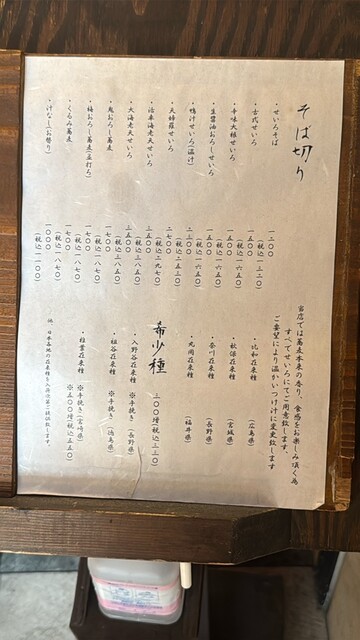 そば切り
・せいろそば 一二〇〇
(税込一三二〇)
・古式せいろ 一五〇〇
(税込一六五〇)
・辛味大根せいろ 一五〇〇
(税込一六五〇)
・生醤油おろしせいろ 一五〇〇
(税込一六五〇)
・鴨汁せいろ(温汁) 二三〇〇
(税込二五三〇)
・天婦羅せいろ 二七〇〇
(税込二九七〇)
・活車海老天せいろ 三五〇〇
(税込三八五〇)
・大海老天せいろ 三五〇〇
(税込三八五〇)
・鬼おろし蕎麦 一七〇〇
(税込一八七〇)
・梅おろし蕎麦(並打ち) 一七〇〇
(税込一八七〇)
・くるみ蕎麦 一七〇〇
(税込一八七〇)
・汁なし(お替り) 一〇〇〇
(税込一一〇〇)
当店では蕎麦本来の香り、食感をお楽しみ頂く為
すべてせいろにてご用意致します。
ご要望により温かいつけ汁に変更致します
・比和在来種 (広島県)
・秋保在来種 (宮城県)
・奈川在来種 (長野県)
・丸岡在来種 (福井県)
希少種 三〇〇増(税込三三〇)
・入野谷在来種 ※手挽き (長野県)
・祖谷在来種 ※手挽き (徳島県)
・椎葉在来種 ※手挽き (宮崎県)
※五〇〇増(税込五五〇)